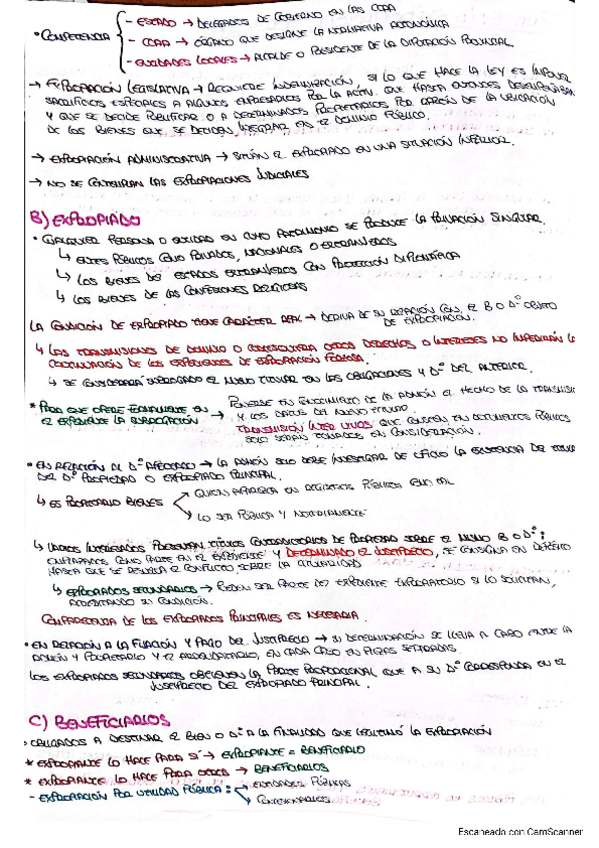 - ESTADO → DELEGADOS DE GOBIERNO EN LAS CCAA
• COMPETENCIA - CCAA → ÓRGANO QUE DESIGNE LA NORMATIVA AUTONÓMICA
- ENTIDADES LOCALES → ALCALDE O PRESIDENTE DE LA DIPUTACIÓN PROVINCIAL
→ EXPROPIACIÓN LEGISLATIVA → REQUIERE INDEMNIZACIÓN, SI LO QUE HACE LA LEY ES IMPONER
SACRIFICIOS ESPECIALES A ALGUNOS EMPRESARIOS POR LA ACTIV. QUE HASTA ENTONCES DESEMPEÑABAN
Y QUE SE DECIDE PUBLIFICAR O A DETERMINADOS PROPIETARIOS POR RAZÓN DE LA UBICACIÓN
DE LOS BIENES QUE SE DECIDEN INTEGRAR EN EL DOMINIO PÚBLICO.
→ EXPROPIACIÓN ADMINISTRATIVA → SITÚAN EL EXPROPIADO EN UNA SITUACIÓN INFERIOR.
→ NO SE CONTEMPLAN LAS EXPROPIACIONES JUDICIALES
B) EXPROPIADO
• CUALQUIER PERSONA O ENTIDAD EN CUYO PATRIMONIO SE PRODUCE LA PRIVACIÓN SINGULAR
↳ ENTES PÚBLICOS COMO PRIVADOS, NACIONALES O EXTRANJEROS
↳ LOS BIENES DE ESTADOS EXTRANJEROS CON PROTECCIÓN DIPLOMÁTICA
↳ LOS BIENES DE LAS CONFESIONES RELIGIOSAS
LA CONDICIÓN DE EXPROPIADO TIENE CARÁCTER REAL → DERIVA DE SU RELACIÓN CON EL B O Dº OBJETO
DE EXPROPIACIÓN.
↳ LAS TRANSMISIONES DE DOMINIO O CUALESQUIERA OTROS DERECHOS O INTERESES NO IMPEDIRÁN LA
CONTINUACIÓN DE LOS EXPEDIENTES DE EXPROPIACIÓN FORZOSA.
↳ SE CONSIDERARÁ SUBROGADO EL NUEVO TITULAR EN LAS OBLIGACIONES Y Dº DEL ANTERIOR.
* PARA QUE OPERE FORMALMENTE EN
EL EXPEDIENTE LA SUBROGACIÓN
PONERSE EN CONOCIMIENTO DE LA ADMÓN EL HECHO DE LA TRANSMISIÓN
Y LOS DATOS DEL NUEVO TITULAR
TRANSMISIÓN INTER VIVOS QUE CONSTEN EN DOCUMENTOS PÚBLICOS
SOLO SERÁN TOMADOS EN CONSIDERACIÓN.
• EN RELACIÓN AL Dº AFECTADO → LA ADMÓN SOLO DEBE INVESTIGAR DE OFICIO LA EXISTENCIA DEL TITULAR
DEL Dº PROPIEDAD O EXPROPIADO PRINCIPAL.
↳ ES PROPIETARIO BIENES
QUIEN APAREZCA EN REGISTROS PÚBLICOS COMO TAL
LO SEA PÚBLICA Y NOTORIAMENTE
↳ VARIOS INTERESADOS PRESENTAN TÍTULOS CONTRADICTORIOS DE PROPIEDAD SOBRE EL MISMO B O Dº;
COMO PARTE EN EL EXPEDIENTE Y DETERMINADO EL JUSTIPRECIO, SE CONSIGNA EN DEPÓSITO
HASTA QUE SE RESUELVA EL CONFLICTO SOBRE LA TITULARIDAD
↳ EXPROPIADOS SECUNDARIOS → PUEDEN SER PARTE DEL EXPEDIENTE EXPROPIATORIO SI LO SOLICITAN,
ACREDITANDO SU CONDICIÓN.
COMPARECENCIA DE LOS EXPROPIADOS PRINCIPALES ES NECESARIA.
• EN RELACIÓN A LA FIJACIÓN Y PAGO DEL JUSTIPRECIO → SU DETERMINACIÓN SE LLEVA A CABO ENTRE LA
ADMÓN Y PROPIETARIO Y EL ARRENDATARIO, EN CADA CASO EN PIEZAS SEPARADAS.
LOS EXPROPIADOS SECUNDARIOS OBTIENEN LA PARTE PROPORCIONAL QUE A SU Dº CORRESPONDA EN EL
JUSTIPRECIO DEL EXPROPIADO PRINCIPAL.
C) BENEFICIARIOS
• OBLIGADOS A DESTINAR EL BIEN O Dº A LA FINALIDAD QUE LEGITIMÓ LA EXPROPIACIÓN
* EXPROPIANTE LO HACE PARA SÍ → EXPROPIANTE = BENEFICIARIO
* EXPROPIANTE LO HACE PARA OTROS → BENEFICIARIOS
- EXPROPIACIÓN POR UTILIDAD PÚBLICA: → ENTIDADES PÚBLICAS
→ CONCESIONARIOS
Escaneado con CamScanner